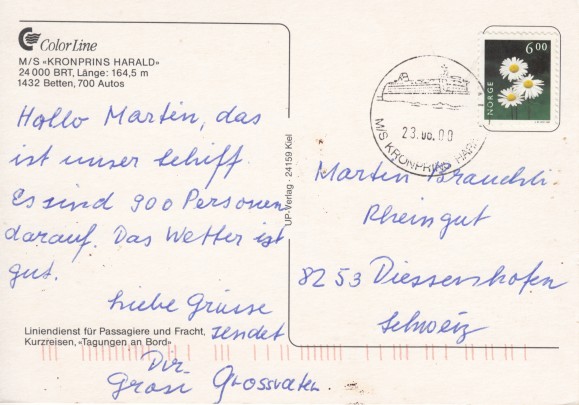 Color Line
M/S «KRONPRINS HARALD»
24 000 BRT, Länge: 164,5 m
1432 Betten, 700 Autos
Hallo Martin, das
ist unser Schiff.
Es sind 900 Personen
darauf. Das Wetter ist
gut.
Liebe Grüsse
sendet
Dir
Gross Grossvater.
Liniendienst für Passagiere und Fracht,
Kurzreisen, «Tagungen an Bord»
UP-Verlag · 24159 Kiel
NORGE
6.00
23.06.00
M/S KRONPRINS HAR
Martin Brauchli
Rheingut
8253 Diessenhofen
Schweiz